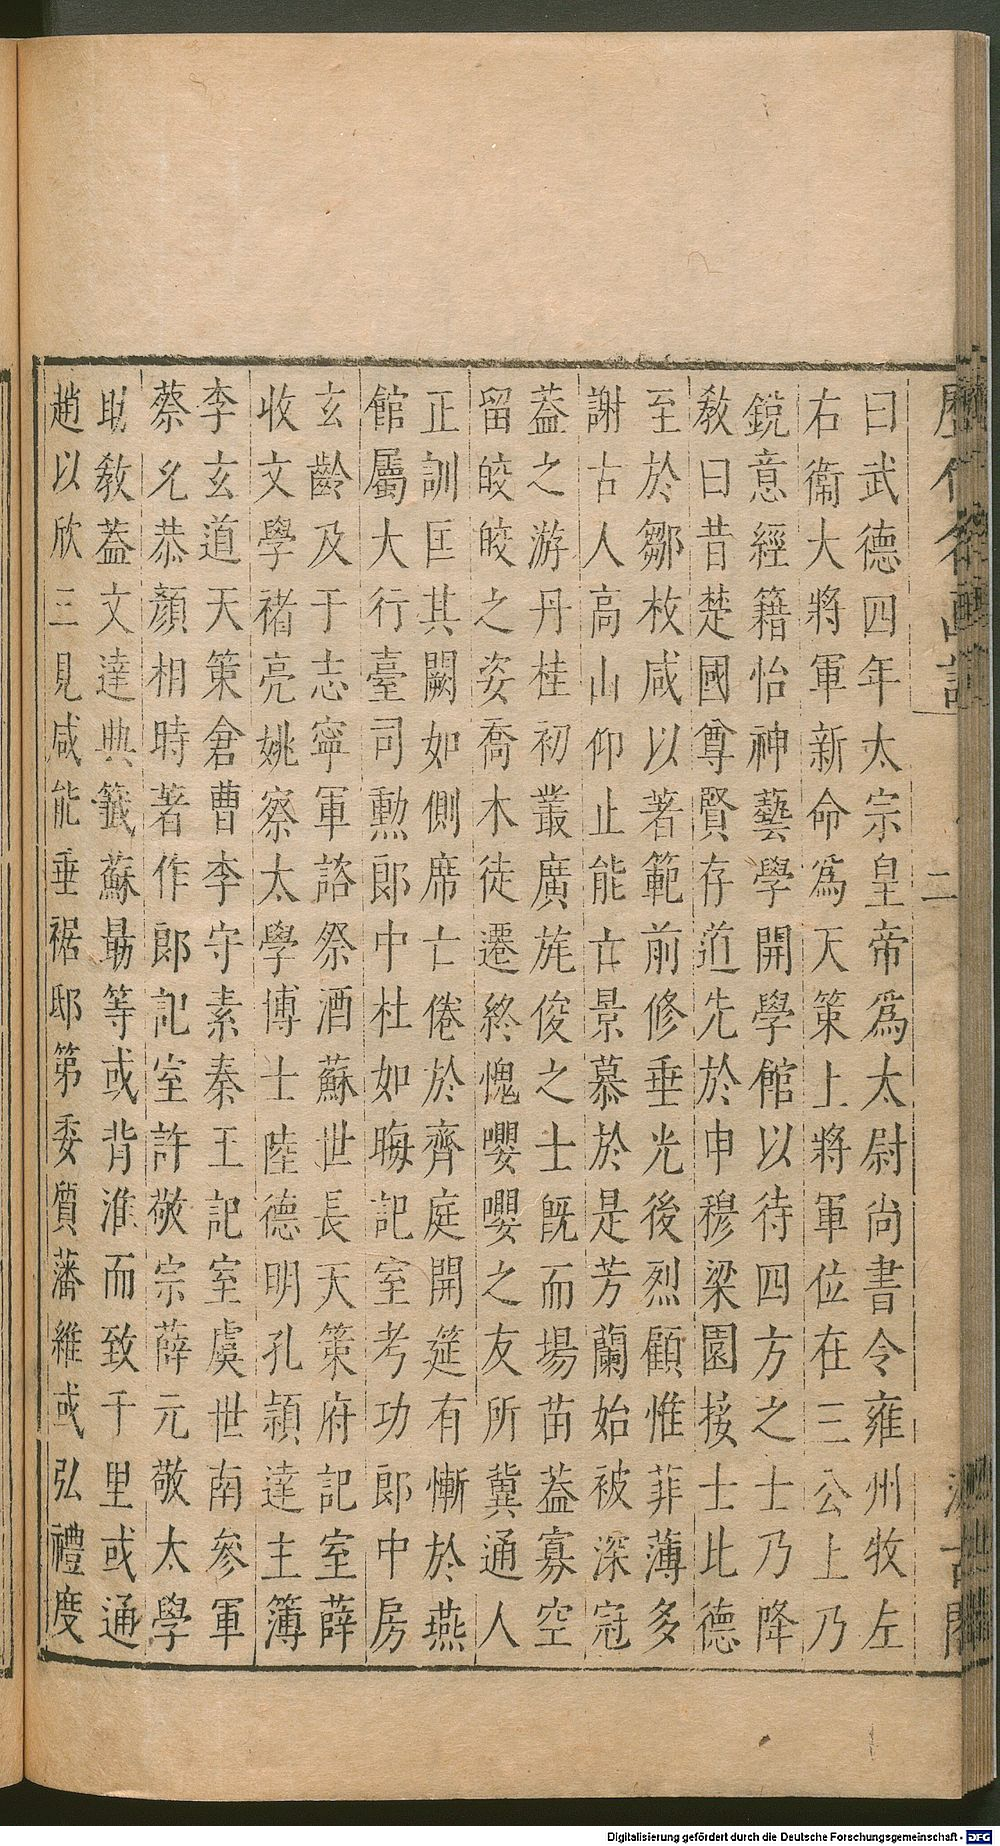 曰武德四年太宗皇帝爲太尉尚書令雍州牧左
右衞大將軍新命爲天策上將軍位在三公上乃
銳意經籍怡神藝學開學館以待四方之士乃降
敎曰昔楚國尊賢存道先於申穆梁園接士比德
至於鄒枚咸以著範前修垂光後烈顧惟菲薄多
謝古人高山仰止能亡景慕於是芳蘭始被深冠
葢之游丹桂初叢廣旄俊之士旣而場苗葢寡空
留皎皎之姿喬木徒遷終愧嚶嚶之友所冀通人
正訓匡其闕如側席亡倦於齊庭開筵有慚於燕
館屬大行臺司勳郎中杜如晦記室考功郎中房
玄齡及于志寧軍諮祭酒蘇世長天策府記室薛
收文學褚亮姚察太學博士陸德明孔頴達主簿
李玄道天策倉曹李守素秦王記室虞世南參軍
蔡允恭顏相時著作郎記室許敬宗薛元敬太學
助敎葢文達典籤蘇勗等或背淮而致千里或通
趙以欣三見咸能垂裾邸第委質藩維或弘禮度
二
Digitalisierung gefördert durch die Deutsche Forschungsgemeinschaft - DFG